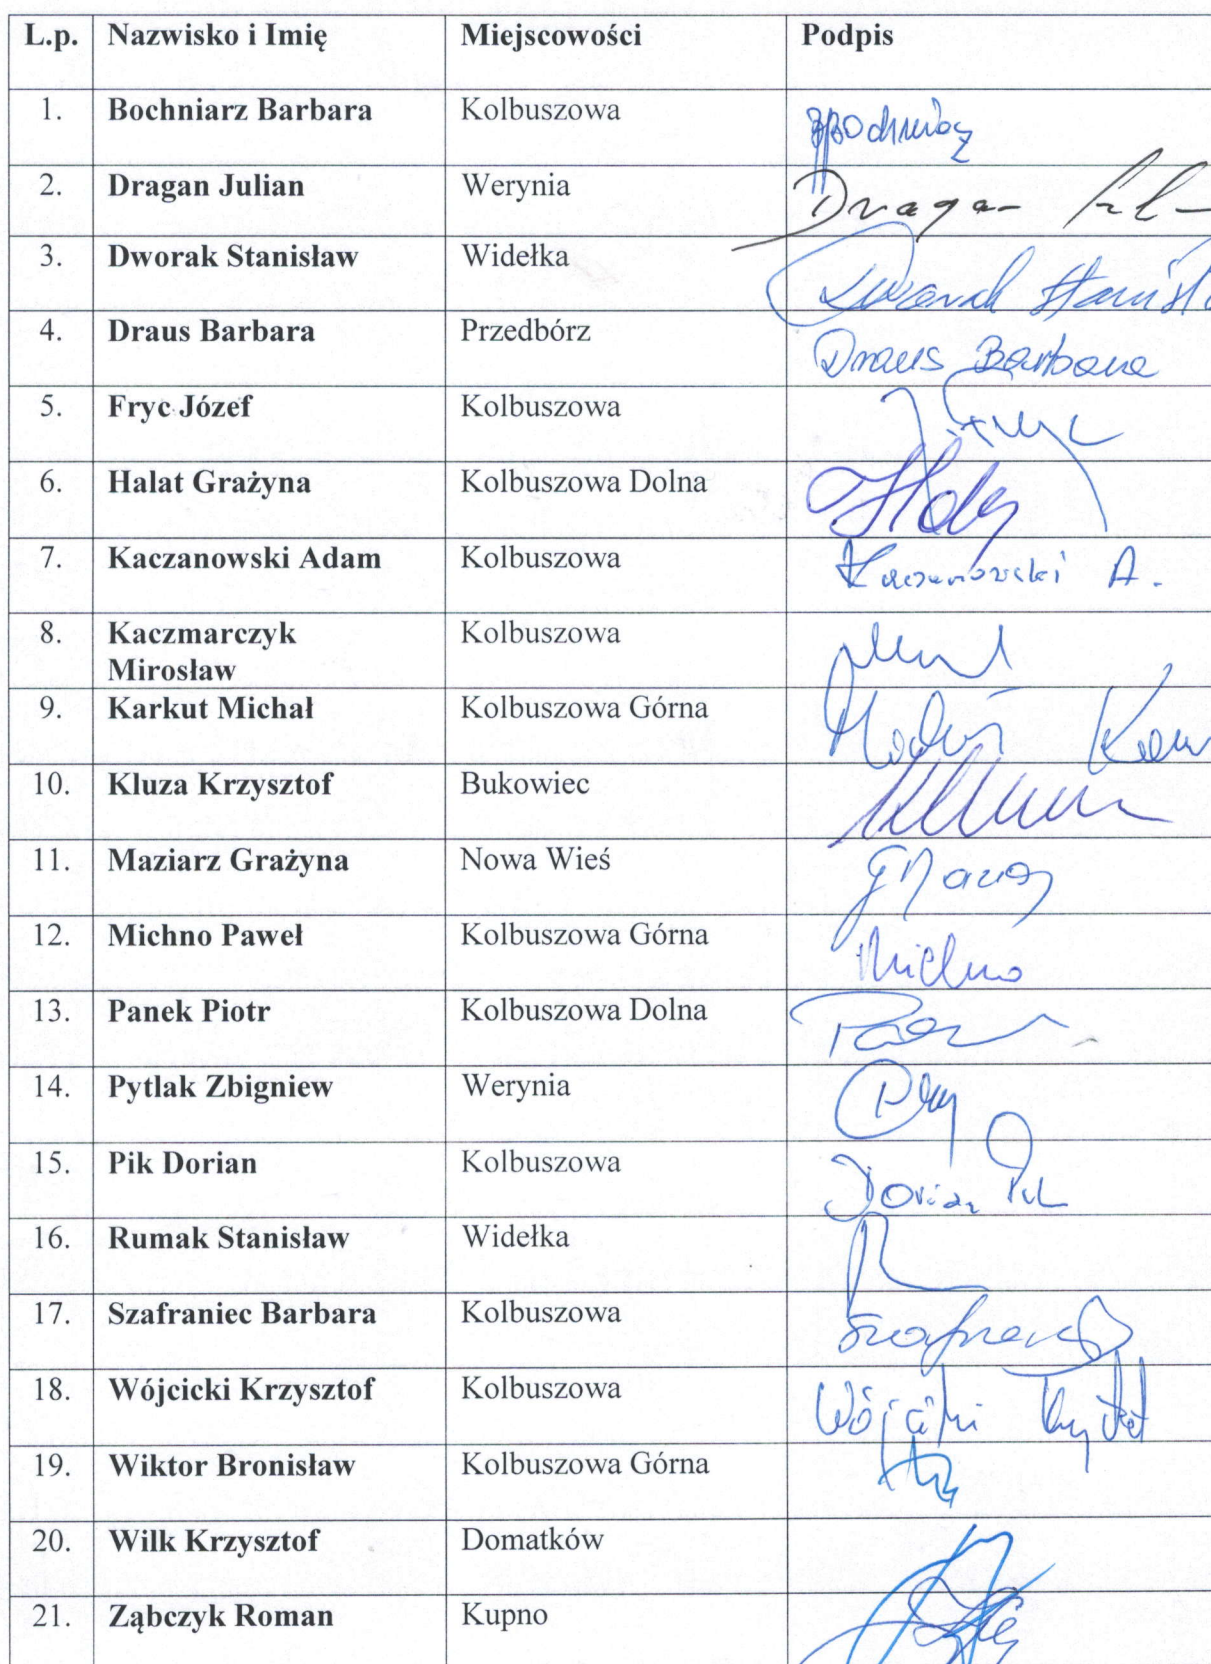 L.p. Nazwisko i Imię Miejscowości Podpis
1. Bochniarz Barbara Kolbuszowa
2. Dragan Julian Werynia Dragan
3. Dworak Stanisław Widełka Dworak Stanisła
4. Draus Barbara Przedbórz Draus Barbara
5. Fryc Józef Kolbuszowa
6. Halat Grażyna Kolbuszowa Dolna
7. Kaczanowski Adam Kolbuszowa Kaczanowski A.
8. Kaczmarczyk Kolbuszowa
Mirosław
9. Karkut Michał Kolbuszowa Górna
10. Kluza Krzysztof Bukowiec
11. Maziarz Grażyna Nowa Wieś
12. Michno Paweł Kolbuszowa Górna Michno
13. Panek Piotr Kolbuszowa Dolna
14. Pytlak Zbigniew Werynia
15. Pik Dorian Kolbuszowa Dorian Pik
16. Rumak Stanisław Widełka
17. Szafraniec Barbara Kolbuszowa
18. Wójcicki Krzysztof Kolbuszowa Wójcicki
19. Wiktor Bronisław Kolbuszowa Górna
20. Wilk Krzysztof Domatków
21. Ząbczyk Roman Kupno